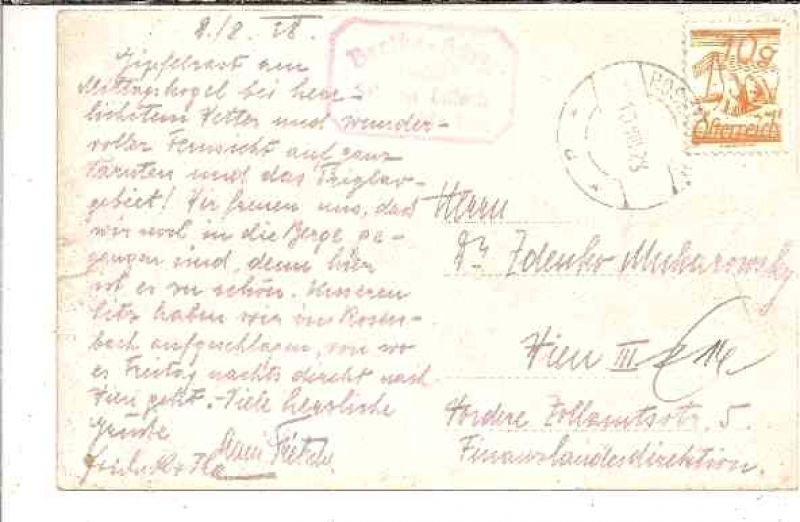 2./8. 28.
Gipfelrast am
Mittagskogel bei herr-
lichstem Wetter und wunder-
voller Fernsicht auf ganz
Kärnten und das Triglav-
gebiet! Wir freuen uns, daß
wir noch in die Berge ge-
gangen sind, denn hier
ist es so schön. Unseren
Sitz haben wir in Rosen-
bach aufgeschlagen, von wo
es Freitag nachts direkt nach
Wien geht. - Viele herzliche
Grüße
Bertha
10g
Österreich
Herrn
Dr. Zdenko Mukarowsky
Wien III
Vordere Zollamtsstr. 5.
Finanzlandesdirektion.